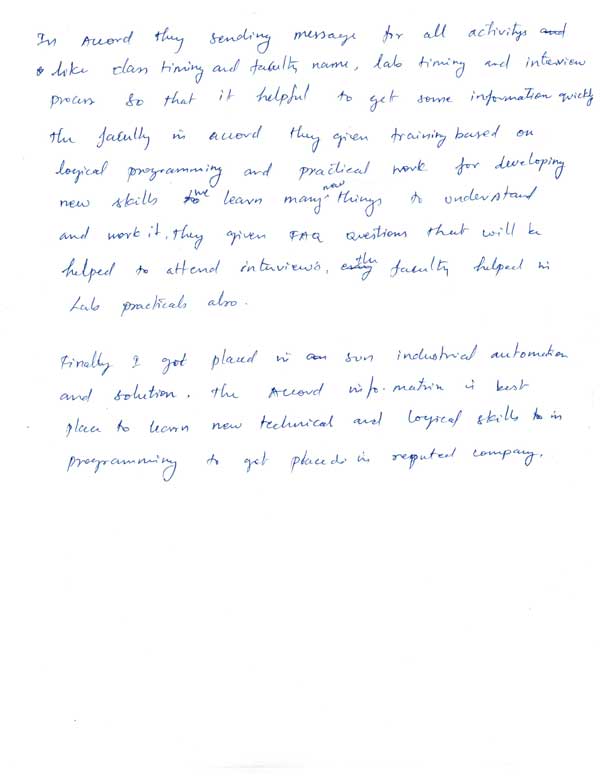 In Accord they sending message for all activitys and
like class timing and faculty name, lab timing and interview
process so that it helpful to get some information quickly
the faculty in accord they given training based on
logical programming and practical work for developing
new skills we learn many new things to understand
and work it. they given FAQ questions that will be
helped to attend interviews, the faculty helped in
Lab practicals also.
Finally I got placed in sun industrial automation
and solution. the Accord info-matrix is best
place to learn new technical and logical skills in
programming to get placed in reputed company.